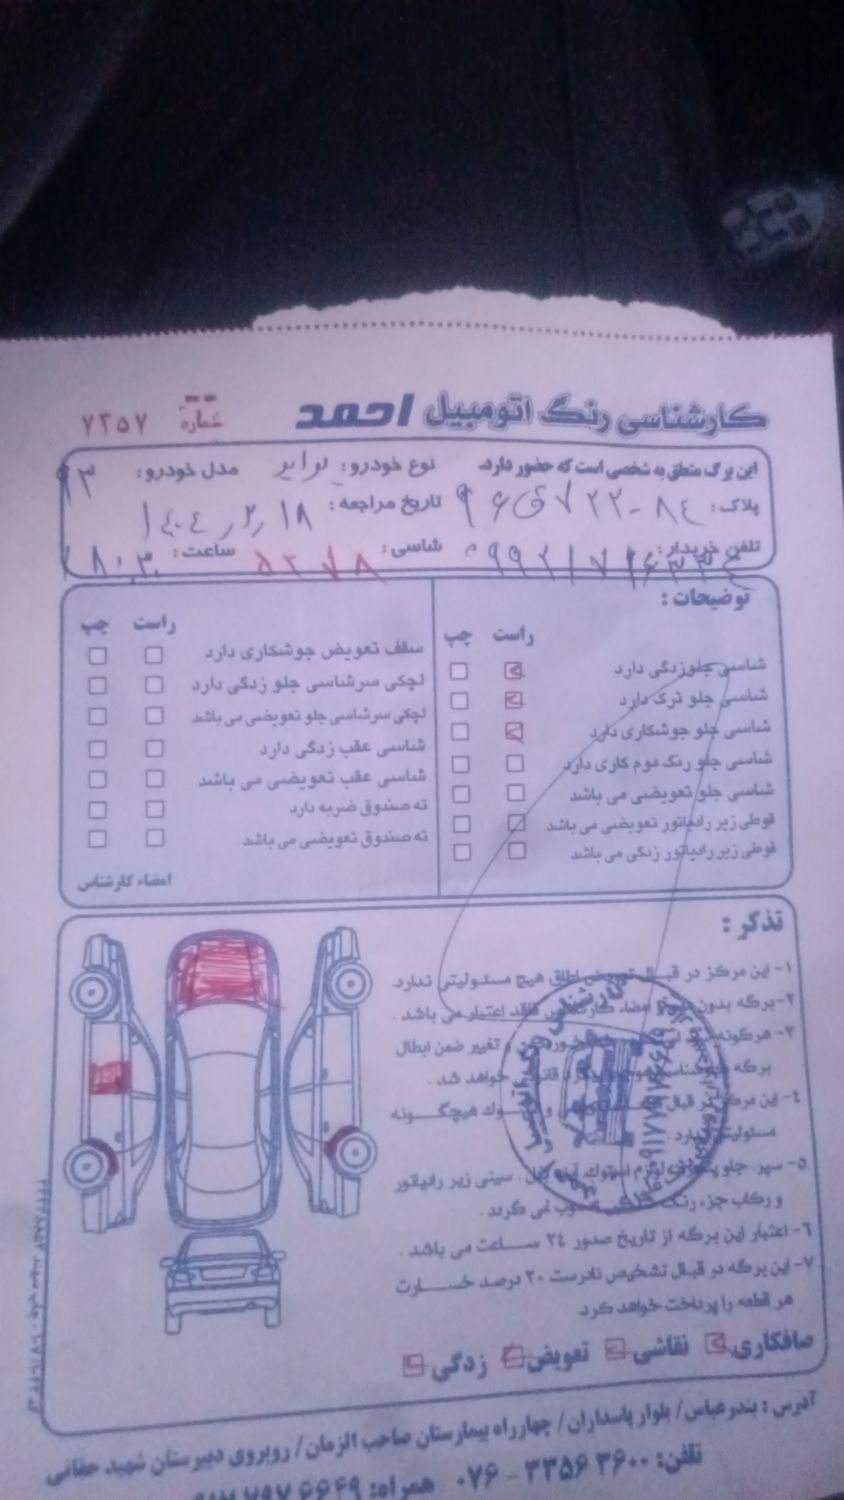 کارشناسی رنگ اتومبیل احمد
شماره ۷۳۵۷
این برگ متعلق به شخصی است که حضور دارد.
نوع خودرو: پراید
مدل خودرو: ۹۳
پلاک: ۸۴-۲۲
تاریخ مراجعه: ۱۴۰۴٫۲٫۱۸
تلفن خریدار:
شاسی: ۵۲۷۸
ساعت: ۱۸:۳۰
توضیحات:
راست چپ
شاسی جلو زدگی دارد
شاسی جلو ترک دارد
شاسی جلو جوشکاری دارد
شاسی جلو رنگ موم کاری دارد
شاسی جلو تعویضی می باشد
قوطی زیر رادیاتور تعویضی می باشد
قوطی زیر رادیاتور زدگی می باشد
راست چپ
سقف تعویض جوشکاری دارد
لچکی سرشاسی جلو زدگی دارد
لچکی سرشاسی جلو تعویضی می باشد
شاسی عقب زدگی دارد
شاسی عقب تعویضی می باشد
ته صندوق ضربه دارد
ته صندوق تعویضی می باشد
امضاء کارشناس
تذکر:
۱- این مرکز در قبال تعویض اطاق هیچ مسئولیتی ندارد.
۲- برگه بدون امضاء فاقد اعتبار می باشد.
۳- هرگونه و تغییر ضمن ابطال
برگه خواهد شد.
۴- این مرکز در قبال هیچگونه
مسئولیتی ندارد.
۵- سپر، جلو پنجره، سینی زیر رادیاتور
و رکاب جزء رنگ نمی گردد.
۶- اعتبار این برگه از تاریخ صدور ۲۴ ساعت می باشد.
۷- این برگه در قبال تشخیص نادرست ۲۰ درصد خسارت
هر قطعه را پرداخت خواهد کرد
صافکاری نقاشی تعویض زدگی
آدرس: بندرعباس/ بلوار پاسداران/ چهارراه بیمارستان صاحب الزمان/ روبروی دبیرستان شهید حقانی
تلفن: ۳۶۰۰ ۳۳۵۶ - ۰۷۶ همراه: ۰۹۱۷ ۷۹۷ ۶۶۴۹